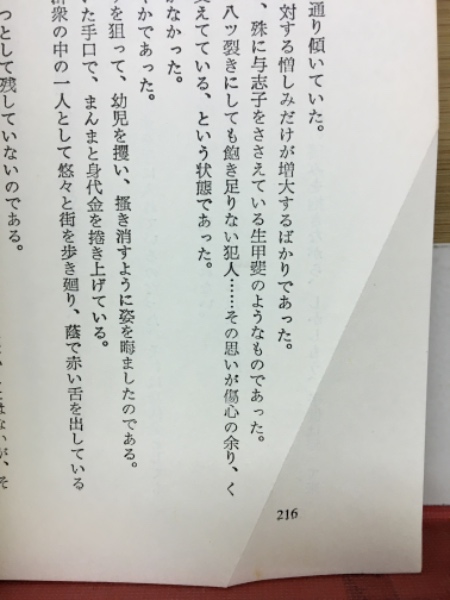 通り傾いていた。
対する憎しみだけが増大するばかりであった。
、殊に与志子をささえている生甲斐のようなものであった。
八ツ裂きにしても飽き足りない犯人……その思いが傷心の余り、く
支えている、という状態であった。
がなかった。
やかであった。
を狙って、幼児を攫い、掻き消すように姿を晦ましたのである。
いた手口で、まんまと身代金を捲き上げている。
衆の中の一人として悠々と街を歩き廻り、蔭で赤い舌を出している
つとして残していないのである。
はないが、そ
216